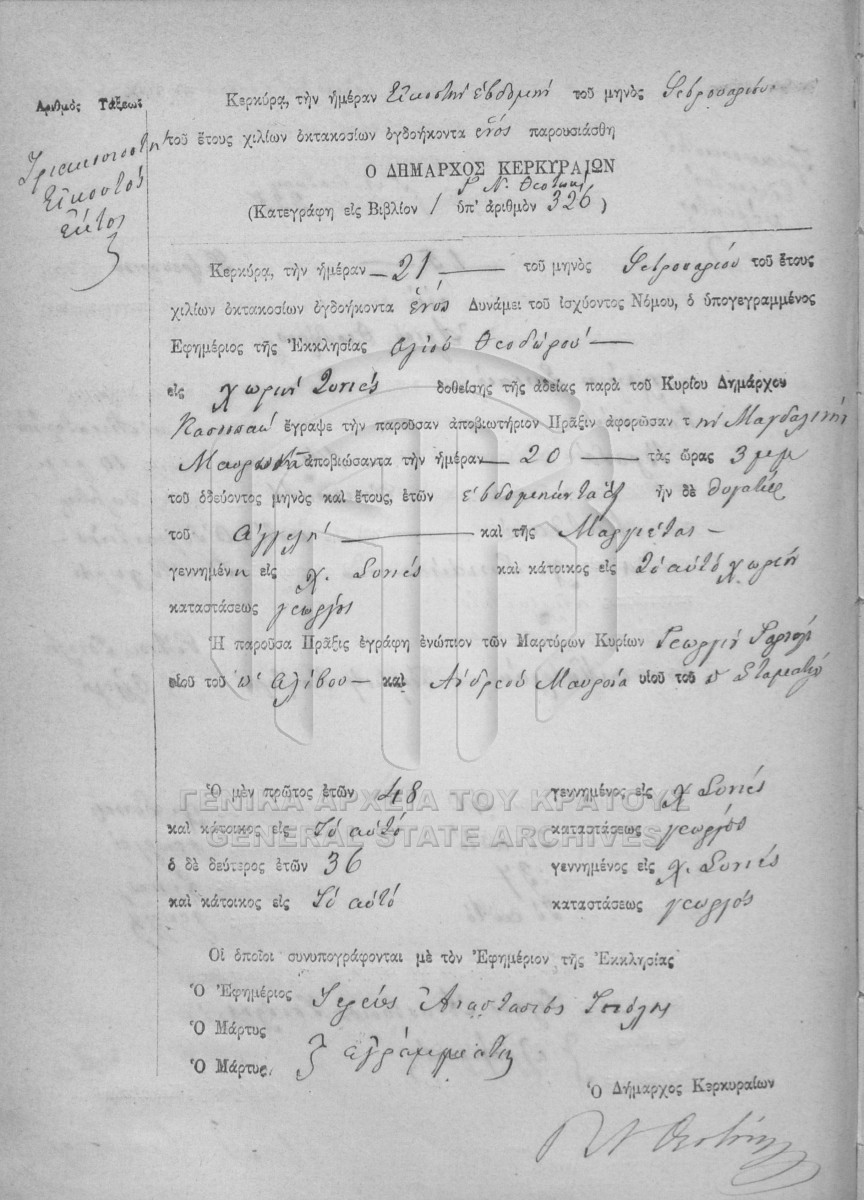 Ἀριθμὸς Τάξεως
Τριακοσιοστὴ
Εἰκοστὸς
Ἕκτος
Κερκύρᾳ, τὴν ἡμέραν Εἰκοστὴν ἑβδόμην τοῦ μηνὸς Φεβρουαρίου
τοῦ ἔτους χιλίων ὀκτακοσίων ὀγδοήκοντα ἑνὸς παρουσιάσθη
Ο ΔΗΜΑΡΧΟΣ ΚΕΡΚΥΡΑΙΩΝ
Ν. Θεοτοκη
(Κατεγράφη εἰς Βιβλίον 1 ὑπ' ἀριθμὸν 326)
Κερκύρᾳ, τὴν ἡμέραν 21 τοῦ μηνὸς Φεβρουαρίου τοῦ ἔτους
χιλίων ὀκτακοσίων ὀγδοήκοντα ἑνὸς Δυνάμει τοῦ ἰσχύοντος Νόμου, ὁ ὑπογεγραμμένος
Ἐφημέριος τῆς Ἐκκλησίας Αγίου Θεοδώρου
εἰς χωρίον Συνιές δοθείσης τῆς ἀδείας παρὰ τοῦ Κυρίου Δημάρχου
ἔγραψε τὴν παροῦσαν ἀποβιωτήριον Πρᾶξιν ἀφορῶσαν τ ην Μαγδαλινήν
ἀποβιώσαντα τὴν ἡμέραν 20 τὰς ὥρας 3 μεμ
τοῦ ὁδεύοντος μηνὸς καὶ ἔτους, ἐτῶν εβδομηκωντα εξ ἦν δὲ θυγατέρ
τοῦ Αγγελη καὶ τῆς Μαργιέτας
γεννημένη εἰς χ. Συνιές καὶ κάτοικος εἰς το αυτό χωρίον
καταστάσεως γεωργός
Ἡ παροῦσα Πρᾶξις ἐγράφη ἐνώπιον τῶν Μαρτύρων Κυρίων Γεωργίου
υἱοῦ τοῦ π Αλίβου καὶ Ανδρέου Μαυρονα υἱοῦ τοῦ π Σταματίου
Ὁ μὲν πρῶτος ἐτῶν 48 γεννημένος εἰς χ Συνιές
καὶ κάτοικος εἰς Το αυτό καταστάσεως γεωργός
ὁ δὲ δεύτερος ἐτῶν 36 γεννημένος εἰς χ. Συνιές
καὶ κάτοικος εἰς Το αυτό καταστάσεως γεωργός
ΓΕΝΙΚΑ ΑΡΧΕΙΑ ΤΟΥ ΚΡΑΤΟΥΣ
GENERAL STATE ARCHIVES
Οἱ ὁποῖοι συνυπογράφονται μὲ τὸν Ἐφημέριον τῆς Ἐκκλησίας
Ὁ Ἐφημέριος Ιερεύς Αναστασιος
Ὁ Μάρτυς
Ὁ Μάρτυς. αγράμματη
Ὁ Δήμαρχος Κερκυραίων